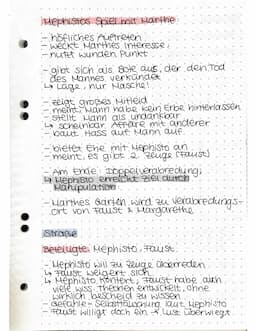 Mephistos Spiel mit Marthe
- höfliches Auftreten
- weckt Marthes Interesse,
- nutzt wunden Punkt
- gibt sich als Bote aus, der den Tod
des Mannes verkündet
↳ Lüge, nur Masche!
- zeigt großes Mitleid
- meint, Mann habe kein Erbe hinterlassen
- stellt Mann als undankbar
↳ scheinbar Affäre mit anderer
- baut Hass auf Mann auf
- bietet Ehe mit Mephisto an
- meint, es gibt 2. Zeuge (Faust)
- Am Ende: Doppelverabredung;
↳ Mephisto erreicht Ziel durch
Manipulation
- Marthes Garten wird zu Verabredungs-
ort von Faust & Margarethe
Straße
Beteiligte: Mephisto, Faust
- Mephisto will zu Zeuge überreden
↳ Faust weigert sich
↳ Mephisto kontert, Faust habe auch
viele wiss. Theorien entwickelt, ohne
wirklich bescheid zu wissen
- Gefühle = laut Mephisto
- Faust willigt doch ein → Lust überwiegt